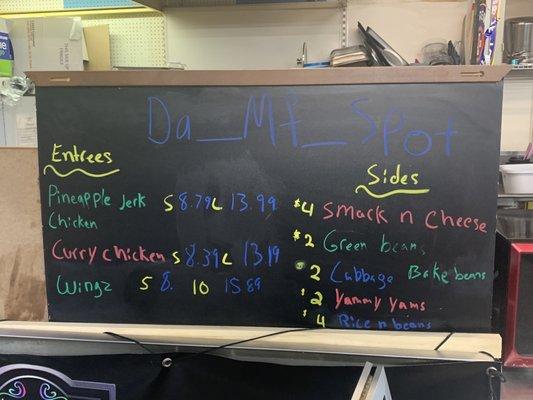 Da_Mf_Spot
Entrees
Pineapple Jerk Chicken S 8.79 L 13.99
Curry chicken S 8.39 L 13.19
Wingz S 8. 10 15.89
Sides
$4 Smack n Cheese
$2 Green beans
2 Cubbage Bake beans
$2 Yammy Yams
$4 Rice n beans